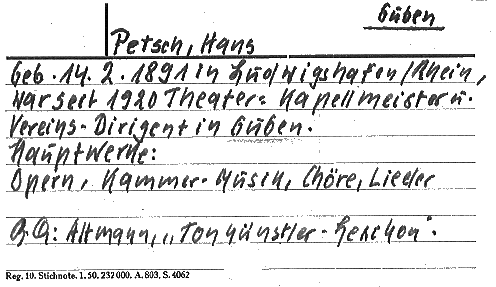 Guben
Petsch, Hans
Geb. 14. 2. 1891 in Ludwigshafen/Rhein,
war seit 1920 Theater- Kapellmeister u.
Vereins- Dirigent in Guben.
Hauptwerke:
Opern, Kammer-Musik, Chöre, Lieder
Altmann, „Tonkünstler-Lexikon".
Reg. 10. Stichnote. 1. 50. 232000. A. 803, S. 4062